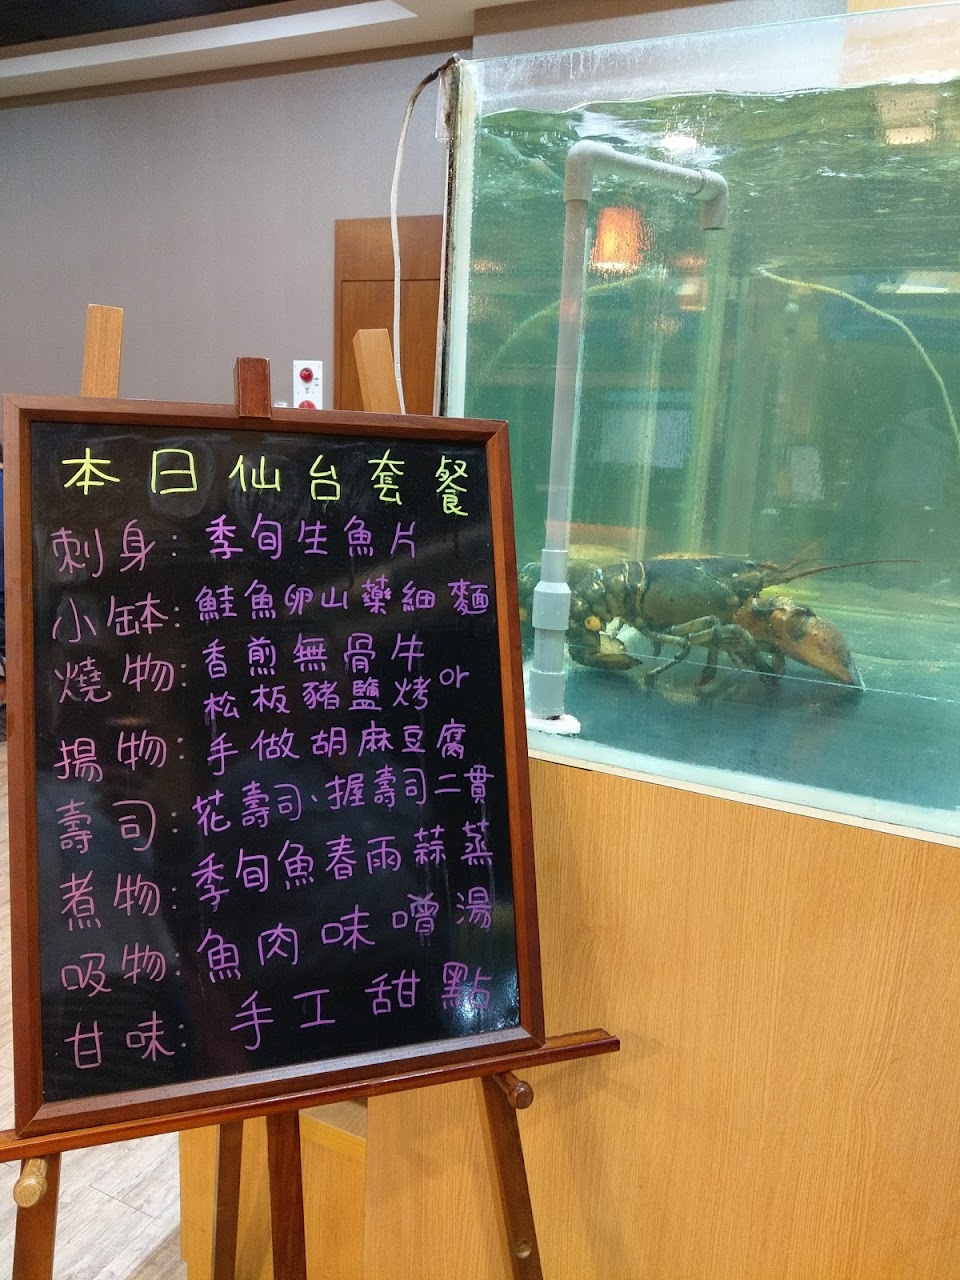 本日仙台套餐
刺身：季旬生魚片
小缽：鮭魚卵山藥細麵
燒物：香煎無骨牛 or
松板豬鹽烤
揚物：手做胡麻豆腐
壽司：花壽司、握壽司二貫
煮物：季旬魚春雨蒜蒸
吸物：魚肉味噌湯
甘味：手工甜點